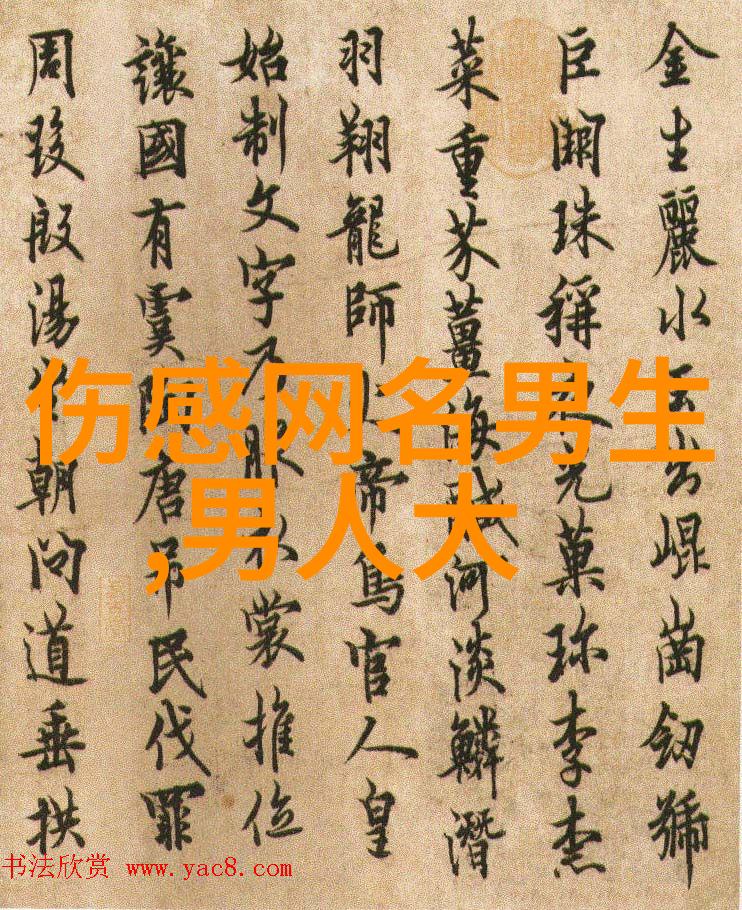 金生麗水玉出崐崗劒號
巨闕珠稱夜光菓珎李柰
菜重芥薑海醎河淡鱗潛
羽翔龍師火帝鳥官人皇
始制文字乃服衣裳推位
讓國有虞陶唐吊民伐罪
周發殷湯坐朝問道垂拱
伤感网名男生
,男人大
书法欣赏 www.yac8.com